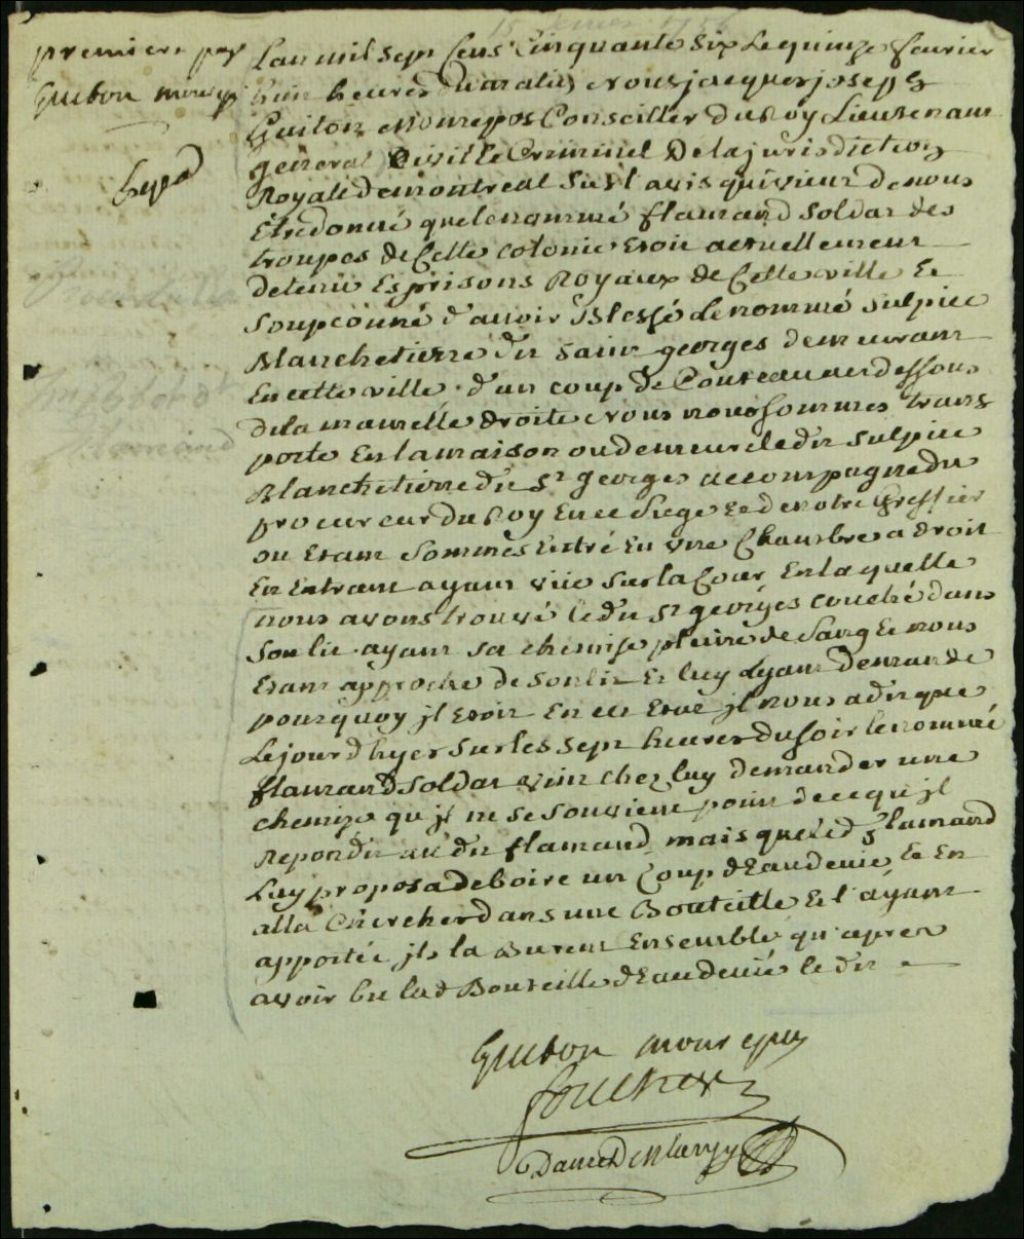 premiere pag
Guiton monrepos
Lan mil sept Cens Cinquante Six Le quinze fevrier
huit heures du matin nous jacques joseph
Guiton Monrepos Conseiller du Roy Lieutenant
general Civil et Criminel De la jurisdiction
Royalle de montreal Sur l avis qui vient de nous
Etre donné que le nommé flamand soldat des
troupes de Cette colonie Etoit actuellement
detenu Es prisons Royaux de Cette ville Et
Soupçonné d'avoir Blessé Le nommé sulpice
Blanchetierre dit Saint georges demeurant
En cette ville d'un coup de Couteau au dessous
de la mamelle droite nous nous sommes trans
porté En la maison ou demeure ledit sulpice
Blanchetierre dit St georges accompagné du
procureur du Roy En ce Siege Et de notre Greffier
ou Etant Sommes Entré En une Chambre a droit
En Entrant ayant vüe sur la Cour En laquelle
nous avons trouvé le dit St georges couché dans
Son lit ayant sa chemise pleine de Sang Et nous
Etant approché de son lit Et luy ayant demandé
pourquoy jl Etoit En cet Etat jl nous a dit que
Le jour d hyer Sur les sept heures du soir le nommé
flamand soldat vint chez luy demander une
chemize qu jl ne se souvient point de ce qu jl
Repondit au dit flamand mais que led flamand
Luy proposa de boire un Coup d'Eau de vie Et En
alla Chercher dans une Bouteille Et l ayant
apportée jls la Burent Ensemble qu apres
avoir bu lad Bouteille d'Eau de vie le dit
Guiton monrepos
foucher
Danré De Blanzy